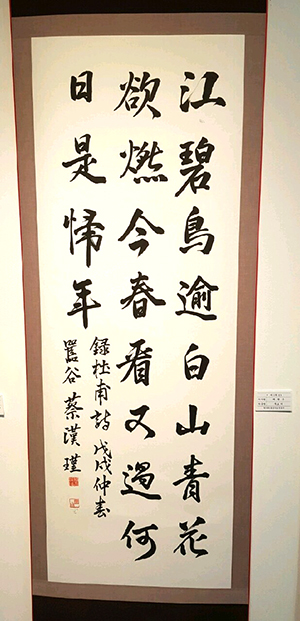 江碧鳥逾白山青花
欲燃今春看又過何
日是帰年
錄杜甫詩戊戌仲春
谷蔡漢瑾